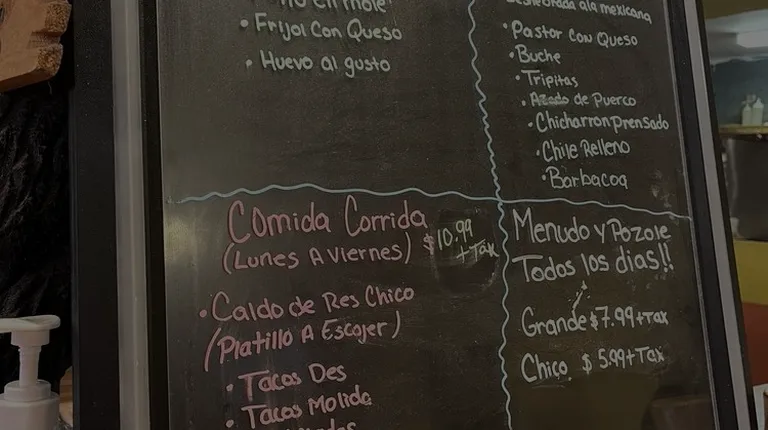 • Frijol Con Queso
• Huevo al gusto
Deshebrada ala mexicana
• Pastor con Queso
• Buche
• Tripitas
• Asado de Puerco
• Chicharron prensado
• Chile Relleno
• Barbacoa
Comida Corrida
(Lunes A Viernes) $10.99
+ Tax
• Caldo de Res Chico
(Platillo A Escojer)
• Tacos Des
• Tacos Molida
Menudo y Pozole
Todos los dias!!
Grande $7.99+Tax
Chico $ 5.99+Tax